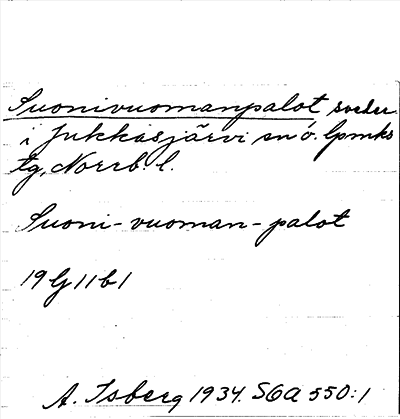 Suonivuomanpalot sveder.
i Jukkasjärvi sn o. lpmks
tg, Norrb. l.
Suoni-vuoman-palot
19 G 11 b 1
A. Isberg 1934. S6a 550:1